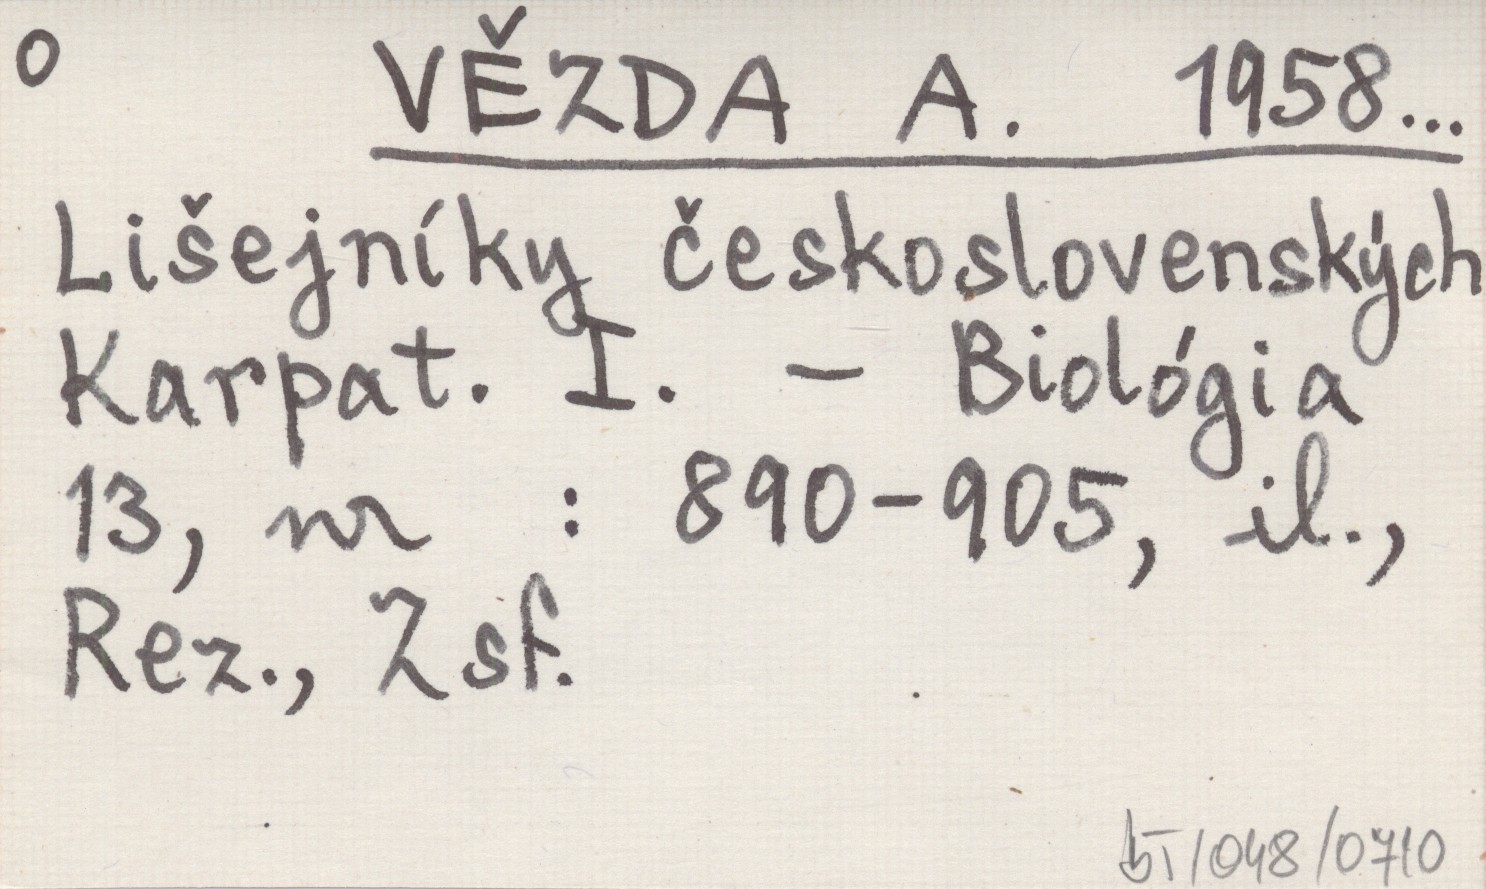 o VĚZDA A. 1958...
Lišejníky československých
Karpat. I. - Biológia
13, nr : 890-905, il.,
Rez., Zsf.
bT/048/0710